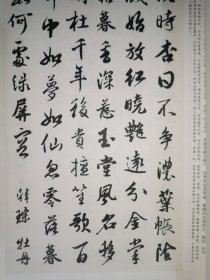 時杏日不争濃葉帳陰
始放紅曉艷遠分金掌
暮香深惹玉堂風名移
杜千年後貴擅笙歌百
中如夢如仙忽零落暮
何處綠屏空
韓琮 牡丹